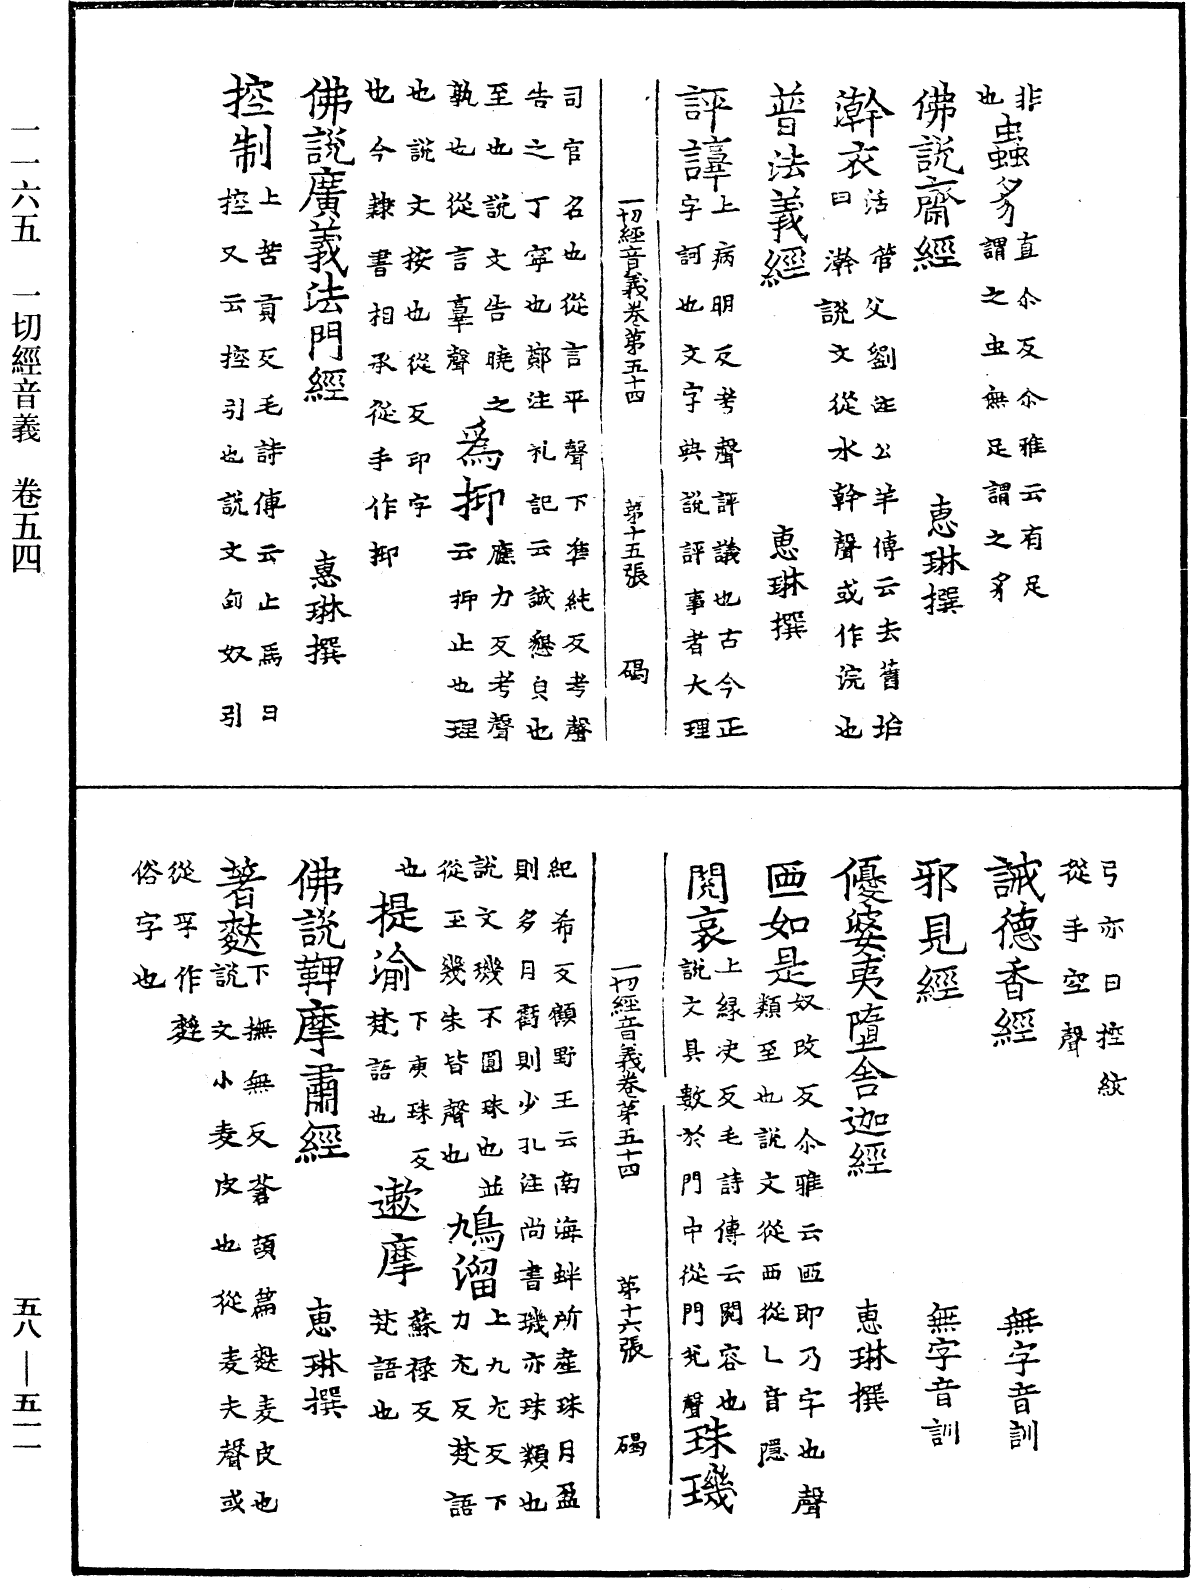 一一六五　一切經音義　卷五四
五八—五一一
非
也
蟲豸
直尒反尒雅云有足
謂之虫無足謂之豸
佛說齋經　惠琳撰
澣衣
活管父劉注公羊傳云去舊垢
曰澣說文從水幹聲或作浣也
普法義經　惠琳撰
評譁
上病明反考聲評議也古今正
字訶也文字典說評事者大理
一切經音義卷第五十四　第十五張　碣
司官名也從言平聲下準純反考聲
告之丁寧也鄭注礼記云誠懇皃也
至也說文告曉之
孰也從言𦎫聲
為抑
應力反考聲
云抑止也理
也說文按也從反印字
也今隸書相承從手作抑
佛說廣義法門經　惠琳撰
控制
上苦貢反毛詩傳云止馬曰
控又云控引也說文匈奴引
弓亦曰控絃
從手空聲
誡德香經　無字音訓
邪見經　無字音訓
優婆夷墮舍迦經　惠琳撰
迺如是
奴改反尒雅云迺即乃字也聲
類至也說文從西從乚音隱
閱哀
上緣决反毛詩傳云閱容也
說文具數於門中從門兊聲
珠璣
一切經音義卷第五十四　第十六張　碣
紀希反顧野王云南海蚌所產珠月盈
則多月虧則少孔注尚書璣亦珠類也
說文璣不圓珠也並
從玉幾朱皆聲也
鳩溜
上九尢反下
力尢反梵語
也
提渝
下庾珠反
梵語也
遬摩
蘇祿反
梵語也
佛說鞞摩肅經　惠琳撰
著麩
下撫無反蒼頡篇麩麦皮也
說文小麦皮也從麦夫聲或
從孚作𪌘
俗字也